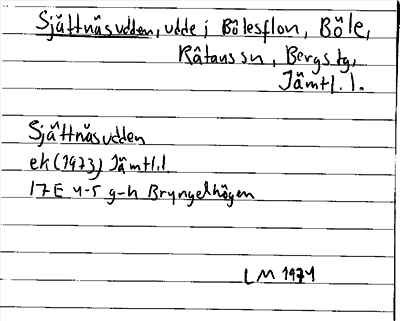 Sjättnäsudden, udde i Bölesflon, Böle,
Rätans sn, Bergs tg,
Jämtl. l.
Sjättnäsudden
ek (1973) Jämtl. l
17E 4-5 g-h Bryngelhögen
LM 1974